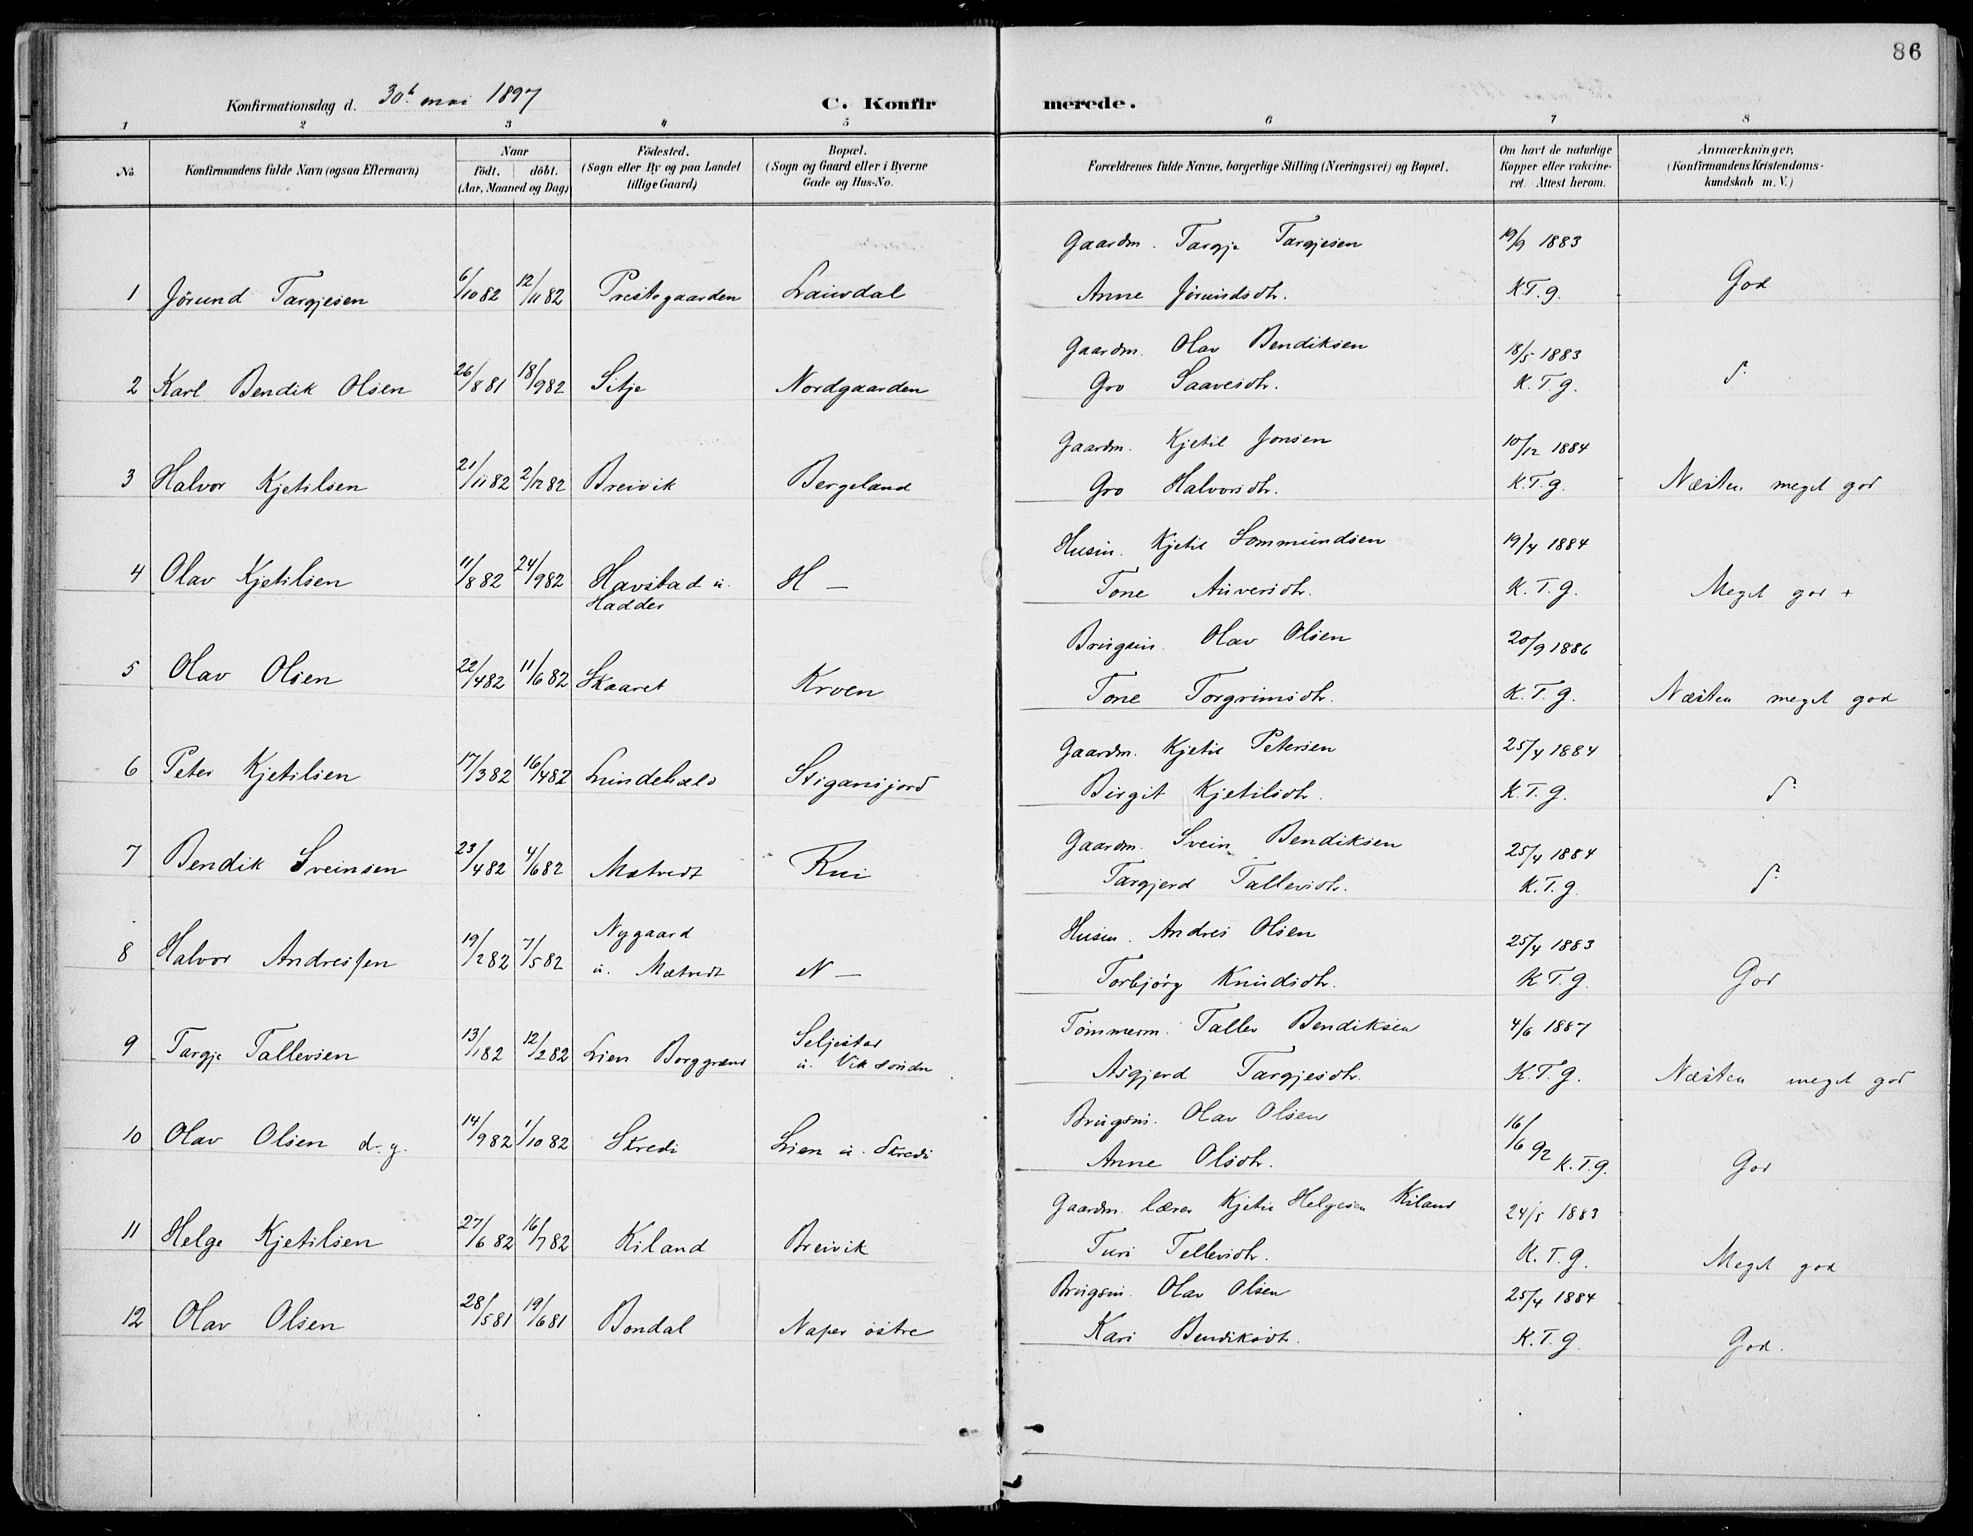 86
Konfirmationsdag d. 30t mai 1897
C. Konfirmerede.
1 2 3 4 5 6 7 8
No
Konfirmandens fulde Navn (ogsaa Efternavn)
Naar
födt. döbt.
(Aar, Maaned og Dag)
Födested.
(Sogn eller By og paa Landet
tillige Gaard)
Bopæl.
(Sogn og Gaard eller i Byerne
Gade og Hus-No.
Forældrenes fulde Navne, borgerlige Stilling (Næringsvei) og Bopæl.
Om havt de naturlige
Kopper eller vakcine-
ret. Attest herom.
Anmærkninger.
(Konfirmandens Kristendoms-
kundskab m. V.)
Gaardm. Targje Targjesen 19/9 1883
1 Jörund Targjesen 6/10 82 12/11 82 Prestegaarden Laurdal Anne Jörundsdtr. K.T.g. God
Gaardm. Olav Bendiksen 18/5 1883
2 Karl Bendik Olsen 26/8 81 18/9 82 Sitje Nordgaarden Gro Saavesdtr. K.T.g.
Gaardm. Kjetil Jonsen 10/12 1884
3 Halvor Kjetilsen 21/11 82 2/12 82 Breivik Bergeland Gro Halvorsdtr. K.T.g. Næsten meget god
Husm. Kjetil Gommundsen 19/4 1884
4 Olav Kjetilsen 11/8 82 24/9 82 Havstad u. H — Tone Auversdtr. K.T.g. Meget god +
Hadder
Brugsm. Olav Olsen 20/9 1886
5 Olav Olsen 22/4 82 11/6 82 Skaaret Kroen Tone Torgrimsdtr. K.T.g. Næsten meget god
Gaardm. Kjetil Petersen 25/4 1884
6 Peter Kjetilsen 17/3 82 16/4 82 Lundekals Stigansjord Birgit Kjetilsdtr. K.T.g.
Gaardm. Svein Bendiksen 25/4 1884
7 Bendik Sveinsen 23/4 82 4/6 82 Mætvedt Rui Targjerd Tallevsdtr. K.T.g.
Nygaard Husm. Andres Olsen 25/4 1883
8 Halvor Andresen 19/2 82 7/5 82 u. Mætvedt N — Torbjörg Knudsdtr. K.T.g. God
Seljestad Tömmerm. Tallev Bendiksen 4/6 1887
9 Targje Tallevsen 13/1 82 12/2 82 Lien Borggrend u. Vik söndre Asgjerd Targjesdtr. K.T.g. Næsten meget god
Brugsm. Olav Olsen 16/6 92
10 Olav Olsen d. y. 14/9 82 1/10 82 Skredi Lien u. Skredi Anne Olsdtr. K.T.g. God
Gaardm. lærer Kjetil Helgesen Kiland 24/5 1883
11 Helge Kjetilsen 27/6 82 16/7 82 Kiland Breivik Turi Tellevsdtr. K.T.g. Meget god
Brugsm. Olav Olsen 25/4 1884
12 Olav Olsen 28/5 81 19/6 81 Bondal Naper östre Kari Bendiksdtr. K.T.g. God.